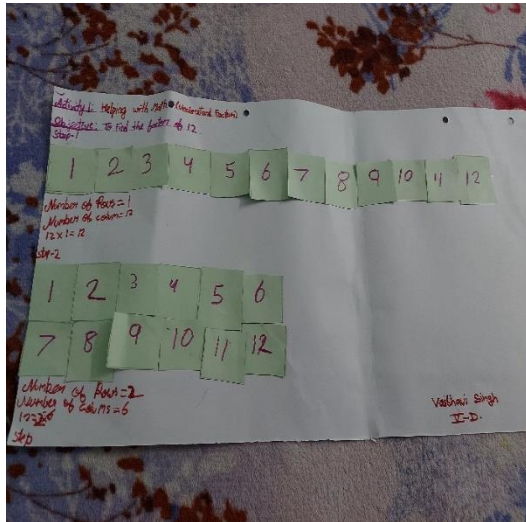 Activity 1: Helping with Math (Understand Factors)
Objective: To find the factors of 12
Step-1
1 2 3 4 5 6 7 8 9 10 11 12
Number of Rows = 1
Number of colum = 12
12 x 1 = 12
step-2
1 2 3 4 5 6
7 8 9 10 11 12
Number of Rows = 2
Number of colums = 6
step
Singh
V-D.